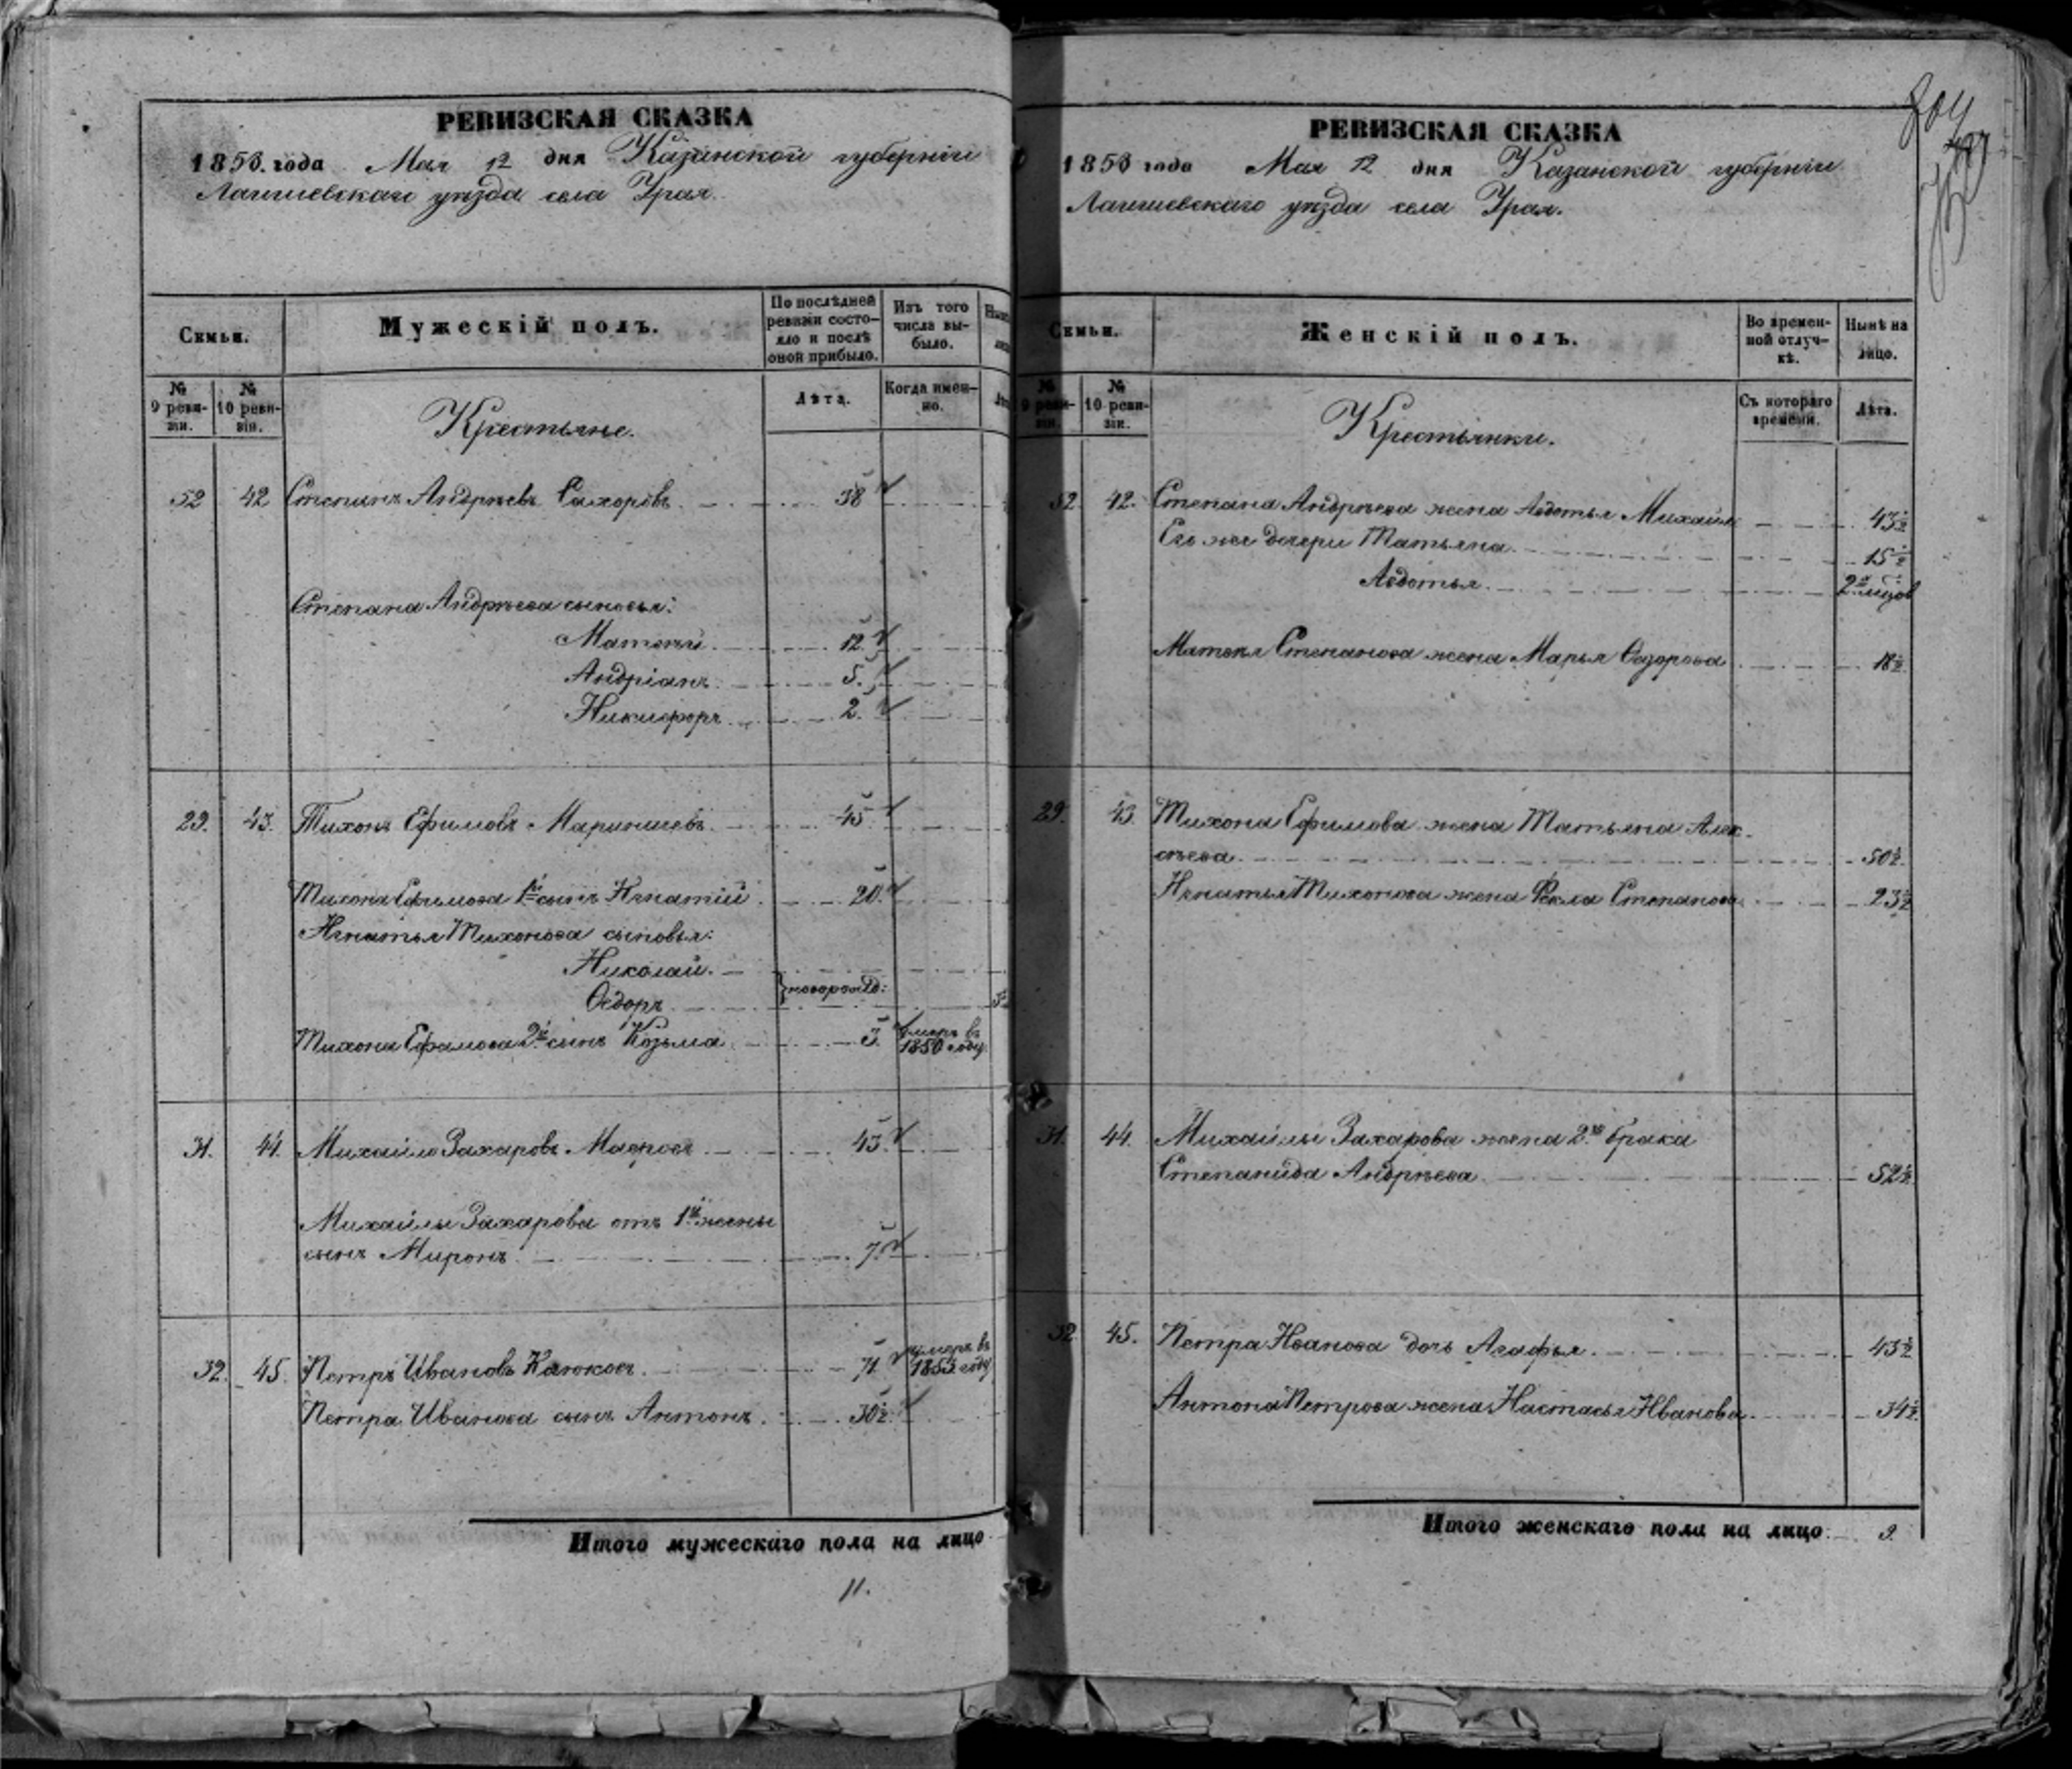 РЕВИЗСКАЯ СКАЗКА
1858. года Мая 12 дня Казанской губерніи
Лаишевскаго уѣзда села Урая.
Семьи.
Мужескій полъ.
По послѣдней ревизіи состояло и послѣ оной прибыло.
Изъ того числа выбыло.
№ 9 ревизіи.
№ 10 ревизіи.
Крестьяне.
Лѣта.
Когда именно.
52 42 Степанъ Андрѣевъ 38
Степана Андрѣева сыновья:
Матвѣй 12.
Андріанъ 5.
Никифоръ 2.
29. 43. Тихонъ Ефимовъ 45
Тихона Ефимова 1й сынъ Игнатій 20.
Игнатья Тихонова сыновья:
Николай.
новорожд:
Ѳедоръ
Тихона Ефимова 2й сынъ Козьма 3. умеръ въ 1850 году
31. 44. Михайло Захаровъ 43.
Михайлы Захарова отъ 1й жены
сынъ Миронъ 7.
32. 45. Петръ Ивановъ 71 умеръ въ году
Петра Иванова сынъ Антонъ. 30½
Итого мужескаго пола на лицо
11.
РЕВИЗСКАЯ СКАЗКА
1858 года Мая 12 дня Казанской губерніи
Лаишевскаго уѣзда села Урая.
Семьи.
Женскій полъ.
Во временной отлучкѣ.
Нынѣ на лицо.
№ 9 ревизіи.
№ 10 ревизіи.
Крестьянки.
Съ котораго времени.
Лѣта.
52 42. Степана Андрѣева жена Авдотья Михайл 43½
Его же дочери Татьяна 15½
Авдотья
Матвѣя Степанова жена Марья Ѳедорова 18½
29. 43. Тихона Ефимова жена Татьяна Алек-
сѣева 50½
Игнатья Тихонова жена Ѳекла Степанова 23½
31. 44. Михайлы Захарова жена 2го брака
Степанида Андрѣева 52½
32 45. Петра Иванова дочь Агафья 43½
Антона Петрова жена Настасья Иванова 34½
Итого женскаго пола на лицо 9.